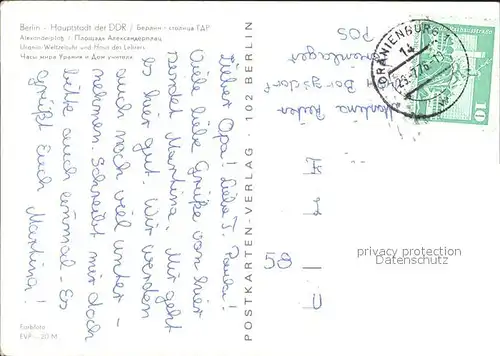 Berlin - Hauptstadt der DDR / Берлин - столица ГДР
Alexanderplatz / Площадь Александерплац
Urania-Weltzeituhr und Haus des Lehrers
Часы мира Урания и Дом учителя
Lieber Opa! Liebe T. Paula!
Viele liebe Grüße von hier
sendet Martina. Mir geht
es hier gut. Wir werden
auch noch viel unter-
nehmen. Schreibt mir doch
bitte auch einmal. Es
grüßt Euch Martina!
Farbfoto
EVP -.20 M
POSTKARTEN-VERLAG · 102 BERLIN
ORANIENBURG
14
10
POS
Martina
58
privacy protection
Datenschutz